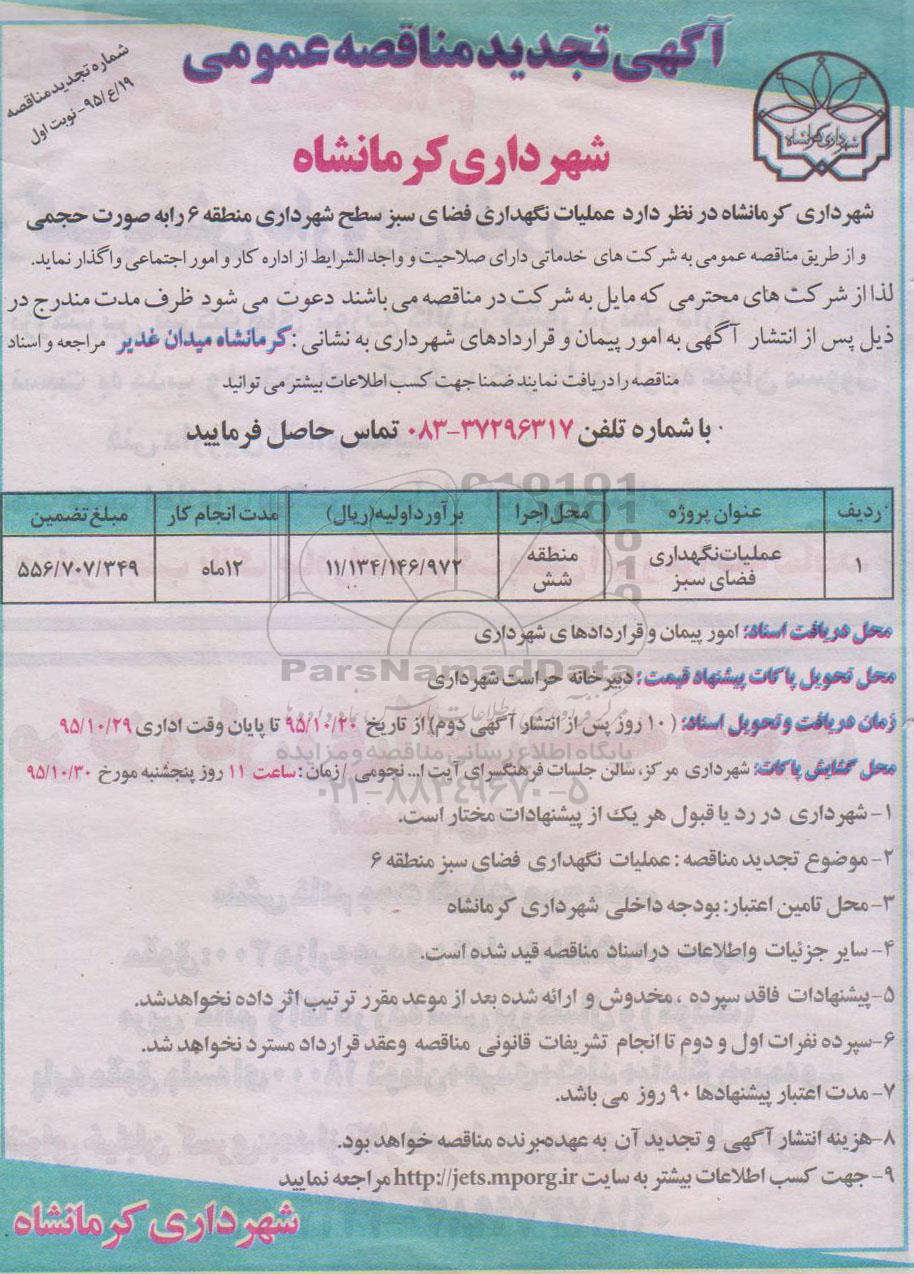 آگهی تجدید مناقصه عمومی
شماره تجدید مناقصه
۱۹/ع/۹۵- نوبت اول
شهرداری کرمانشاه
شهرداری کرمانشاه
شهرداری کرمانشاه در نظر دارد عملیات نگهداری فضای سبز سطح شهرداری منطقه ۶ را به صورت حجمی
و از طریق مناقصه عمومی به شرکت های خدماتی دارای صلاحیت و واجد الشرایط از اداره کار و امور اجتماعی واگذار نماید.
لذا از شرکت های محترمی که مایل به شرکت در مناقصه می باشند دعوت می شود ظرف مدت مندرج در
ذیل پس از انتشار آگهی به امور پیمان و قراردادهای شهرداری به نشانی : کرمانشاه میدان غدیر مراجعه و اسناد
مناقصه را دریافت نمایند ضمنا جهت کسب اطلاعات بیشتر می توانید
با شماره تلفن ۳۷۲۹۶۳۱۷-۰۸۳ تماس حاصل فرمایید
ردیف عنوان پروژه محل اجرا برآورد اولیه(ریال) مدت انجام کار مبلغ تضمین
۱ عملیات نگهداری فضای سبز منطقه شش ۱۱/۱۳۴/۱۴۶/۹۷۲ ۱۲ماه ۵۵۶/۷۰۷/۳۴۹
محل دریافت اسناد: امور پیمان و قراردادهای شهرداری
ParsNamadData
محل تحویل پاکات پیشنهاد قیمت: دبیرخانه حراست شهرداری
زمان دریافت و تحویل اسناد: ( ۱۰ روز پس از انتشار آگهی دوم) از تاریخ ۹۵/۱۰/۲۰ تا پایان وقت اداری ۹۵/۱۰/۲۹
پایگاه اطلاع رسانی مناقصه و مزایده
محل گشایش پاکات: شهرداری مرکز، سالن جلسات فرهنگسرای آیت ا... نجومی / زمان : ساعت ۱۱ روز پنجشنبه مورخ ۹۵/۱۰/۳۰
۰۲۱-۸۸۳۴۹۶۷۰-۵
۱- شهرداری در رد یا قبول هر یک از پیشنهادات مختار است.
۲- موضوع تجدید مناقصه : عملیات نگهداری فضای سبز منطقه ۶
۳- محل تامین اعتبار: بودجه داخلی شهرداری کرمانشاه
۴- سایر جزئیات واطلاعات دراسناد مناقصه قید شده است.
۵- پیشنهادات فاقد سپرده ، مخدوش و ارائه شده بعد از موعد مقرر ترتیب اثر داده نخواهدشد.
۶- سپرده نفرات اول و دوم تا انجام تشریفات قانونی مناقصه وعقد قرارداد مسترد نخواهد شد.
۷- مدت اعتبار پیشنهادها ۹۰ روز می باشد.
۸- هزینه انتشار آگهی و تجدید آن به عهده برنده مناقصه خواهد بود.
۹- جهت کسب اطلاعات بیشتر به سایت http://jets.mporg.ir مراجعه نمایید
شهرداری کرمانشاه